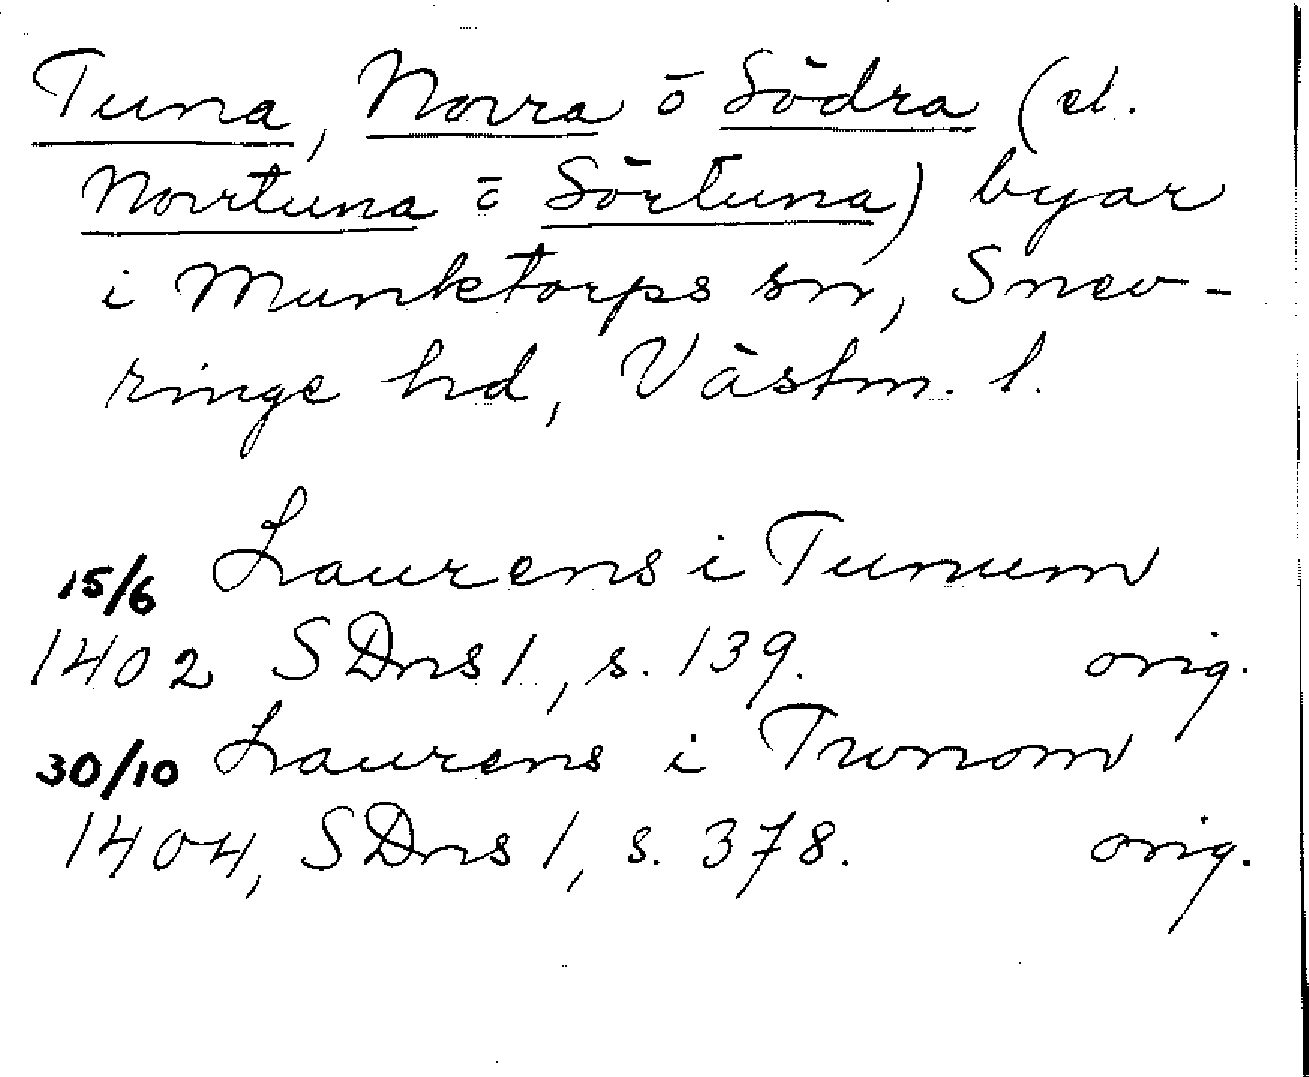 Tuna, Norra o Södra (el.
Norrtuna o Sörtuna) byar
i Munktorps sn, Snev-
ringe hd, Västm. l.
15/6 Laurens i Tunum
1402 SDns 1, s. 139. orig.
30/10 Laurens i Twnom
1404, SDns 1, s. 378. orig.